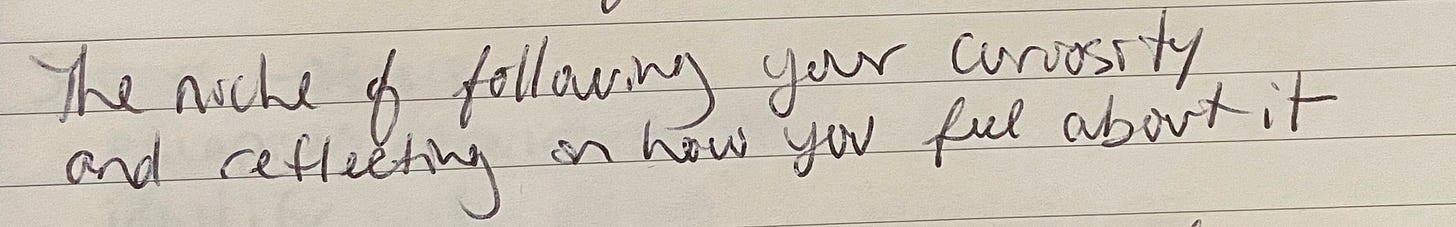 The niche of following your curiosity
and reflecting on how you feel about it